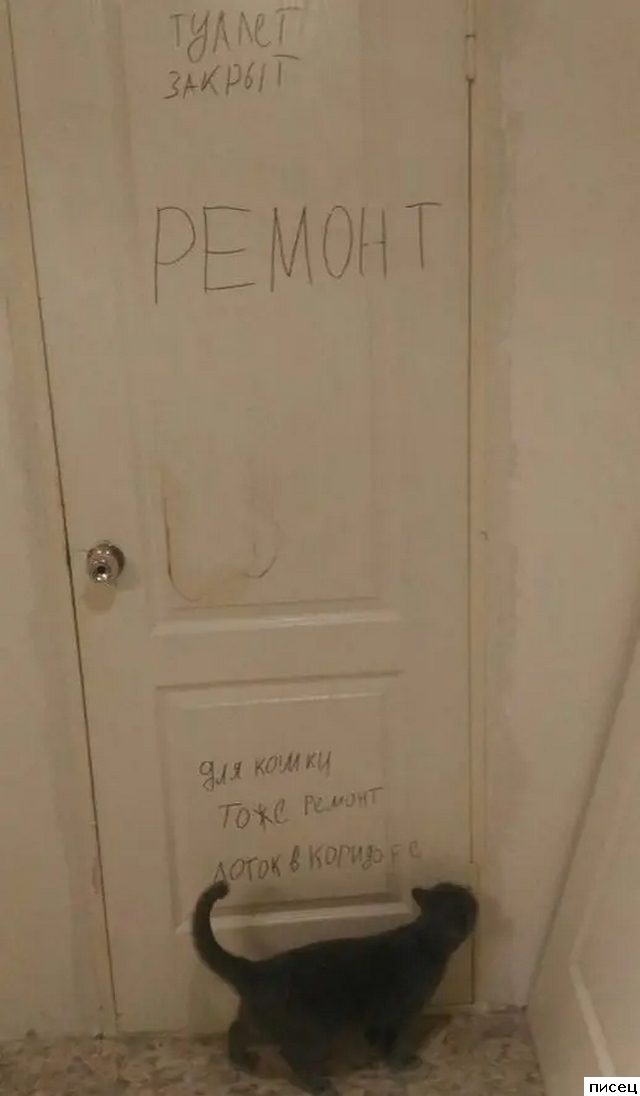 ТУАЛЕТ
ЗАКРЫТ
РЕМОНТ
для кошки
тоже ремонт
лоток в коридоре
писец